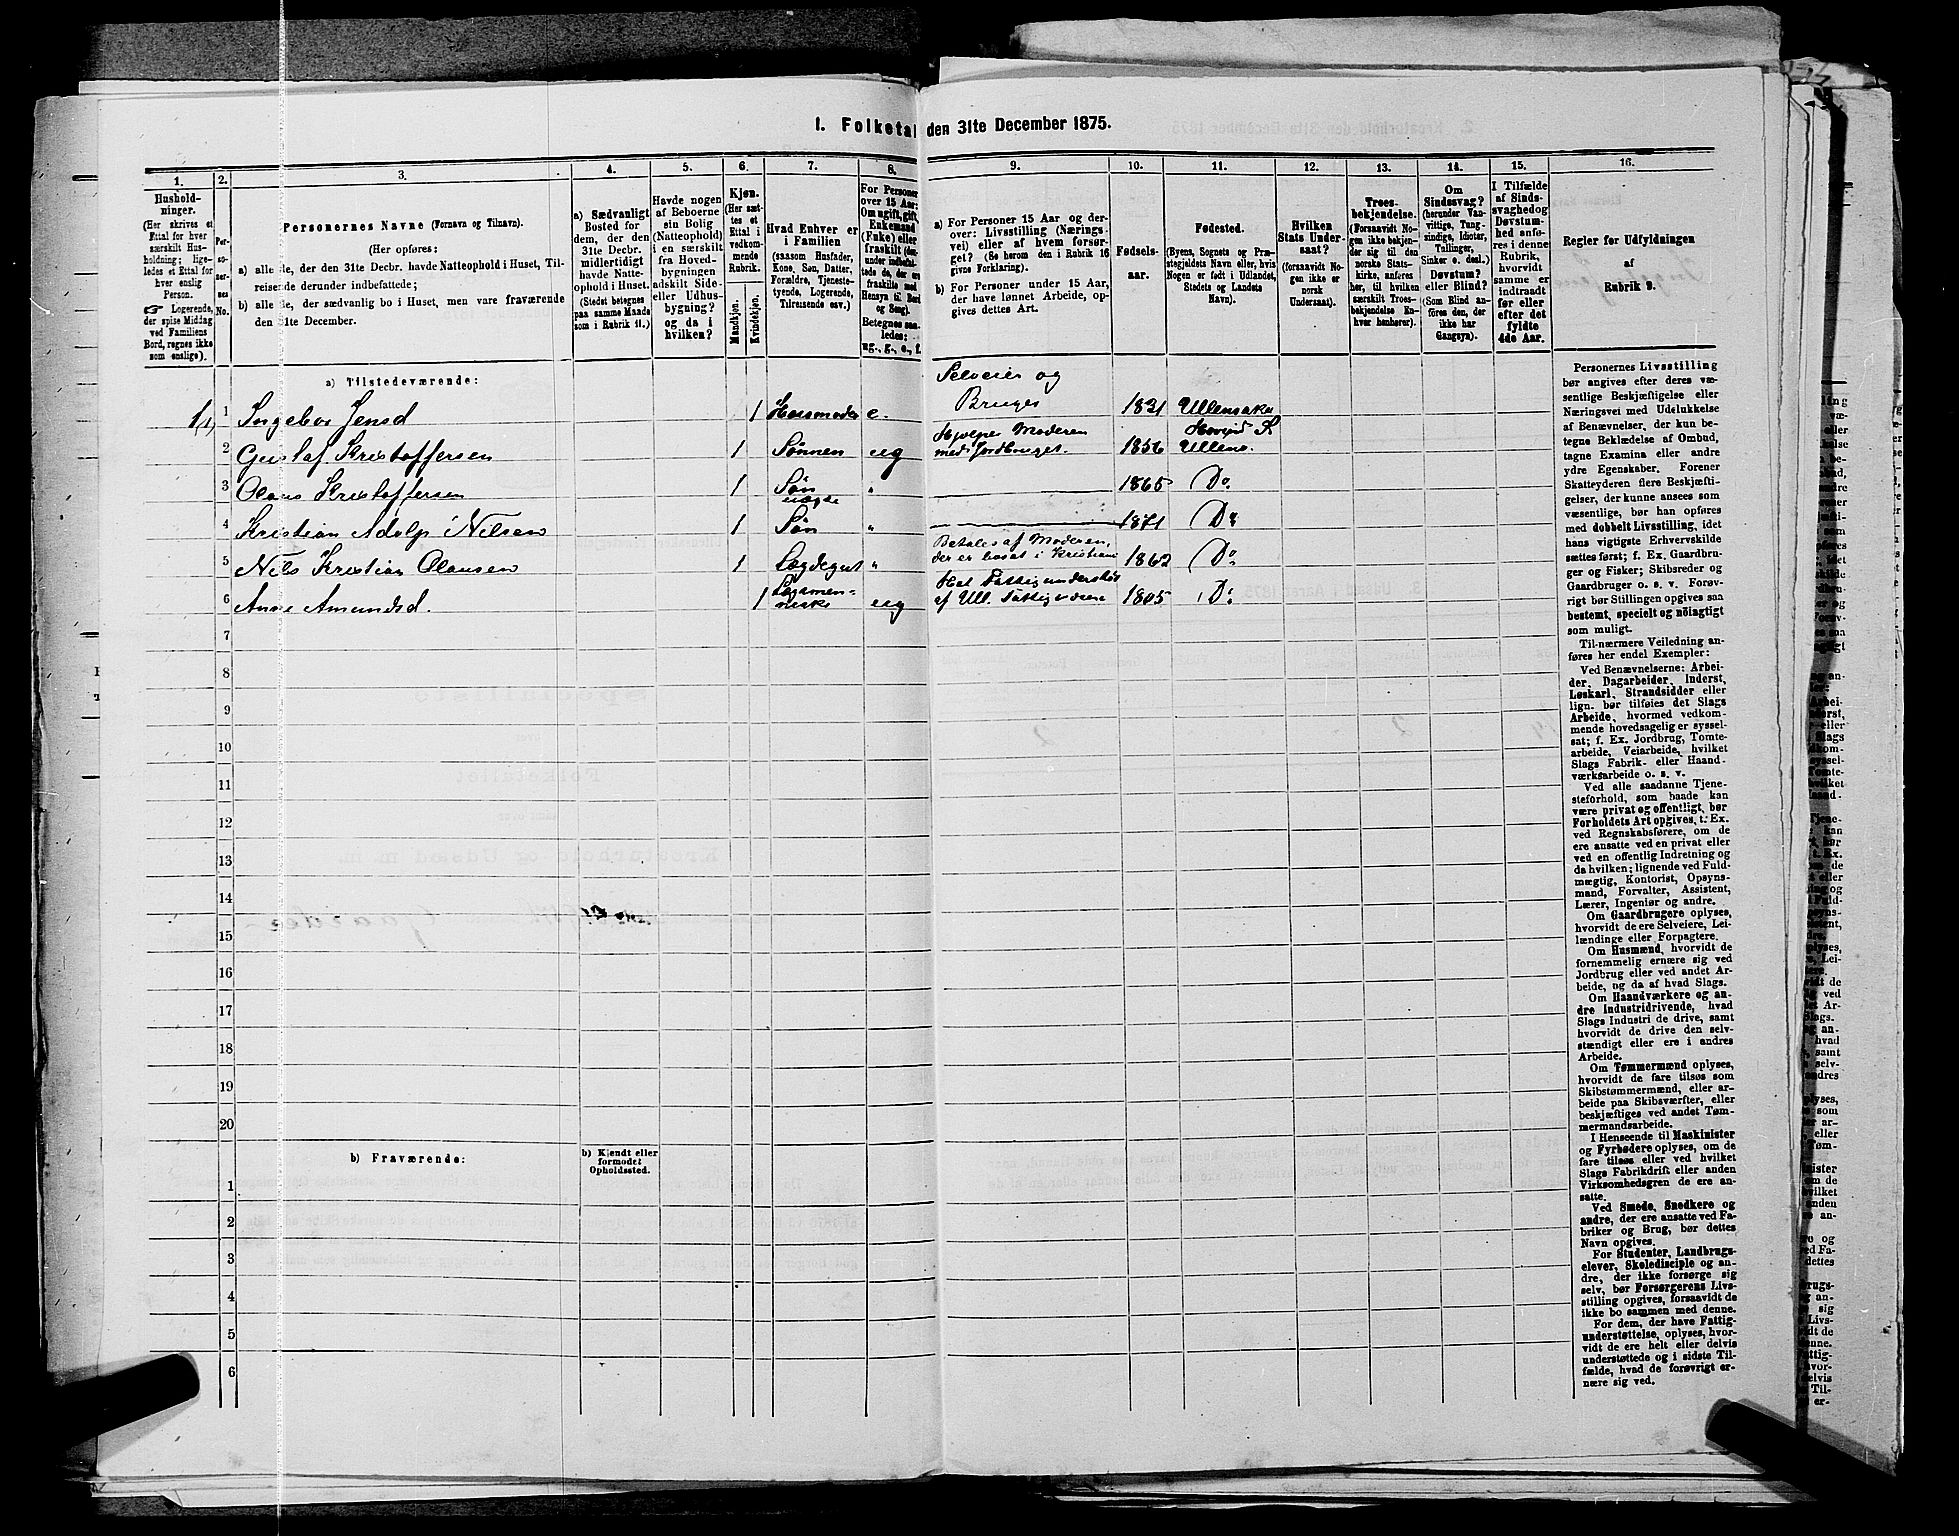 1. Folketal den 31te December 1875.
1.
2.
3.
4.
5.
6.
7.
8.
9.
10.
11.
12.
13.
14.
15.
16.
Hushold-
ninger.
(Her skrives et
Ettal for hver
særskilt Hus-
holdning; lige-
ledes et Ettal for
hver enslig
Person.
Logerende,
der spise Middag
ved Familiens
Bord, regnes ikke
som enslige).
Per-
so-
ner-
nes
No.
Personernes Navne (Fornavn og Tilnavn).
(Her opføres:
a) alle de, der den 31te Decbr. havde Natteophold i Huset, Til-
reisende derunder indbefattede;
b) alle de, der sædvanlig bo i Huset, men vare fraværende
den 31te December.
a) Sædvanligt
Bosted for
dem, der den
31te Decbr.
midlertidigt
havde Natte-
ophold i Huset.
(Stedet betegnes
paa samme Maade
som i Rubrik 11.)
Havde nogen
af Beboerne
sin Bolig
(Natteophold)
i en særskilt
fra Hoved-
bygningen
adskilt Side-
eller Udhus-
bygning?
og da i
hvilken?
Kjøn.
(Her sæt-
tes et
Ettal i
vedkom-
mende
Rubrik.
Mandkjøn.
Kvindekjøn.
Hvad Enhver er
i Familien
(saasom Husfader,
Kone, Søn, Datter,
Forældre, Tjeneste-
tyende, Logerende,
Tilreisende osv.)
For Personer
over 15 Aar:
Om ugift, gift,
Enkemand
(Enke) eller
fraskilt (der-
under indbefat-
tede de, der ere
fraskilte med
Hensyn til Bord
og Seng).
Betegnes saa-
ledes:
ug., g., e., f.
a) For Personer 15 Aar og der-
over: Livsstilling (Nærings-
vei) eller af hvem forsør-
get? (Se herom den i Rubrik 16
givne Forklaring).
b) For Personer under 15 Aar,
der have lønnet Arbeide, op-
gives dettes Art.
Fødsels-
aar.
Fødested.
(Byens, Sognets og Præ-
stegjeldets Navn eller, hvis
Nogen er født i Udlandet,
Stedets og Landets
Navn).
Hvilken
Stats Under-
saat?
(forsaavidt No-
gen ikke er
norsk
Undersaat).
Troes-
bekjendelse.
(Forsaavidt No-
gen ikke bekjen-
der sig til den
norske Stats-
kirke, anføres
her, til hvilken
særskilt Troes-
bekjendelse En-
hver henhører).
Om
Sindssvag?
(herunder Van-
vittige, Tung-
sindige, Idioter,
Tullinger,
Sinker o. desl.)
Døvstum?
eller Blind?
(Som Blind an-
føres den, der
ikke har
Gangsyn).
I Tilfælde
af Sinds-
svaghed og
Døvstum-
hed anfø-
res i denne
Rubrik,
hvorvidt
samme er
indtraadt
før eller
efter det
fyldte
4de Aar.
Regler for Udfyldningen
af
Rubrik 9.
a) Tilstedeværende:
1 Ingebor Jensd 1 Husmoder e. Selveier og
Bruger 1821 Ullensaker
2 Gustaf Kristoffersen 1 Sønnen ug Hjelper Moderen
med Jordbruget. 1856 Ullens.
3 Olaus Kristoffersen 1 Søn " 1865 Do
4 Kristian Adolp Nilsen 1 uægte
Søn " 1871 Do
5 Nils Kristian Olausen 1 Lægdegut " Betales af Moderen,
der er bosat i Kristiani 1862 Do
6 Anne Amundsd. 1 Lægsmen-
neske ug Hel Fattigunderstøt
af Ull. Fattigvæsen 1805 Do
7
8
9
10
11
12
13
14
15
16
17
18
19
20
b) Fraværende:
b) Kjendt eller
formodet
Opholdssted.
1
2
3
4
5
6
Personernes Livsstilling
bør angives efter deres væ-
sentlige Beskjæftigelse eller
Næringsvei med Udelukkelse
af Benævnelser, der kun be-
tegne Beklædelse af Ombud,
tagne Examina eller andre
ydre Egenskaber. Forener
Skatteyderen flere Beskjæfti-
gelser, der kunne ansees som
væsentlige, bør han opføres
med dobbelt Livsstilling, idet
hans vigtigste Erhvervskilde
sættes først; f. Ex. Gaardbru-
ger og Fisker; Skibsreder og
Gaardbruger o. s. v. Forøv-
rigt bør Stillingen opgives saa
bestemt, specielt og nöiagtigt
som muligt.
Til nærmere Veiledning an-
føres her endel Exempler:
Ved Benævnelserne: Arbei-
der, Dagarbeider, Inderst,
Løskarl, Strandsidder eller
lign. bør tilføies det Slags
Arbeide, hvormed vedkom-
mende hovedsagelig er syssel-
sat; f. Ex. Jordbrug, Tomte-
arbeide, Veiarbeide, hvilket
Slags Fabrik- eller Haand-
værksarbeide o. s. v.
Ved alle saadanne Tjene-
steforhold, som baade kan
være privat og offentligt, bør
Forholdets Art opgives, t. Ex.
ved Regnskabsførere, om de
ere ansatte ved en privat eller
ved en offentlig Indretning og
da hvilken; lignende ved Fuld-
mægtig, Kontorist, Opsyns-
mand, Forvalter, Assistent,
Lærer, Ingeniør og andre.
Om Gaardbrugere oplyses,
hvorvidt de ere Selveiere, Lei-
lændinge eller Forpagtere.
Om Husmænd, hvorvidt de
fornemmelig ernære sig ved
Jordbrug eller ved andet Ar-
beide, og da af hvad Slags.
Om Haandværkere og an-
dre Industridrivende, hvad
Slags Industri de drive, samt
hvorvidt de drive den selv-
stændigt eller ere i andres
Arbeide.
Om Tømmermænd oplyses,
hvorvidt de fare tilsøs som
Skibstømmermænd, eller ar-
beide paa Skibsværfter, eller
beskjæftiges ved andet Tøm-
mermandsarbeide.
I Henseende til Maskinister
og Fyrbødere oplyses, om de
fare tilsøs eller ved hvilket
Slags Fabrikdrift eller anden
Virksomhedsgren de ere an-
satte.
Ved Smede, Snedkere og
andre, der ere ansatte ved Fa-
briker og Brug, bør dettes
Navn opgives.
For Studenter, Landbrugs-
elever, Skoledisciple og an-
dre, der ikke forsørge sig
selv, bør Forsørgerens Livs-
stilling opgives, forsaavidt de
ikke bo sammen med denne.
For dem, der have Fattig-
understøttelse, oplyses, hvor-
vidt de ere helt eller delvis
understøttede og i sidste Til-
fælde, hvad de forøvrigt er-
nære sig ved.